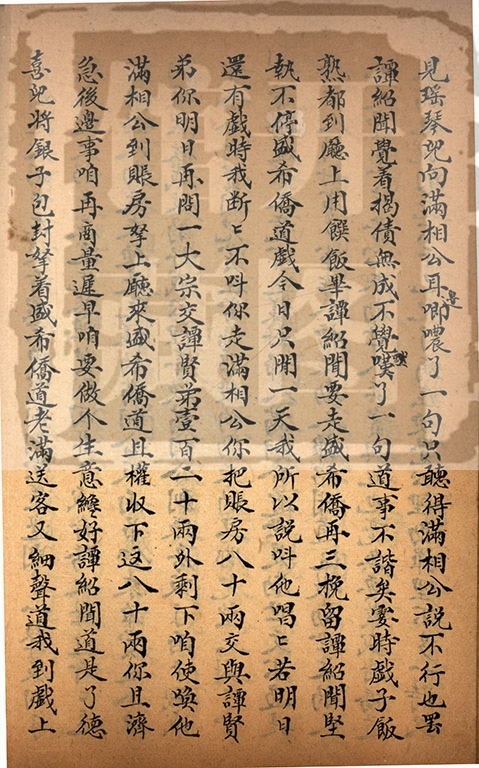 見瑶琴兒向滿相公耳邊唧噥了一句只聽得滿相公說不行也罷
譚紹聞覺着揭債無成不覺嘆了一句道事不諧矣霎時戲子飯
熟都到廳上用饌飯畢譚紹聞要走盛希僑再三挽留譚紹聞堅
執不停盛希僑道戲今日只開一天我所以說呌他唱〻若明日
還有戲時我断〻不呌你走滿相公你把賬房八十兩交與譚賢
弟你明日再問一大宗交譚賢弟壹百二十兩外剩下咱使喚他
滿相公到賬房拏上廳來盛希僑道且權收下这八十兩你且濟
急後邊事咱再商量遲早咱要做个生意纔好譚紹聞道是了德
喜兒將銀子包封拏着盛希僑道老滿送客又細聲道我到戲上